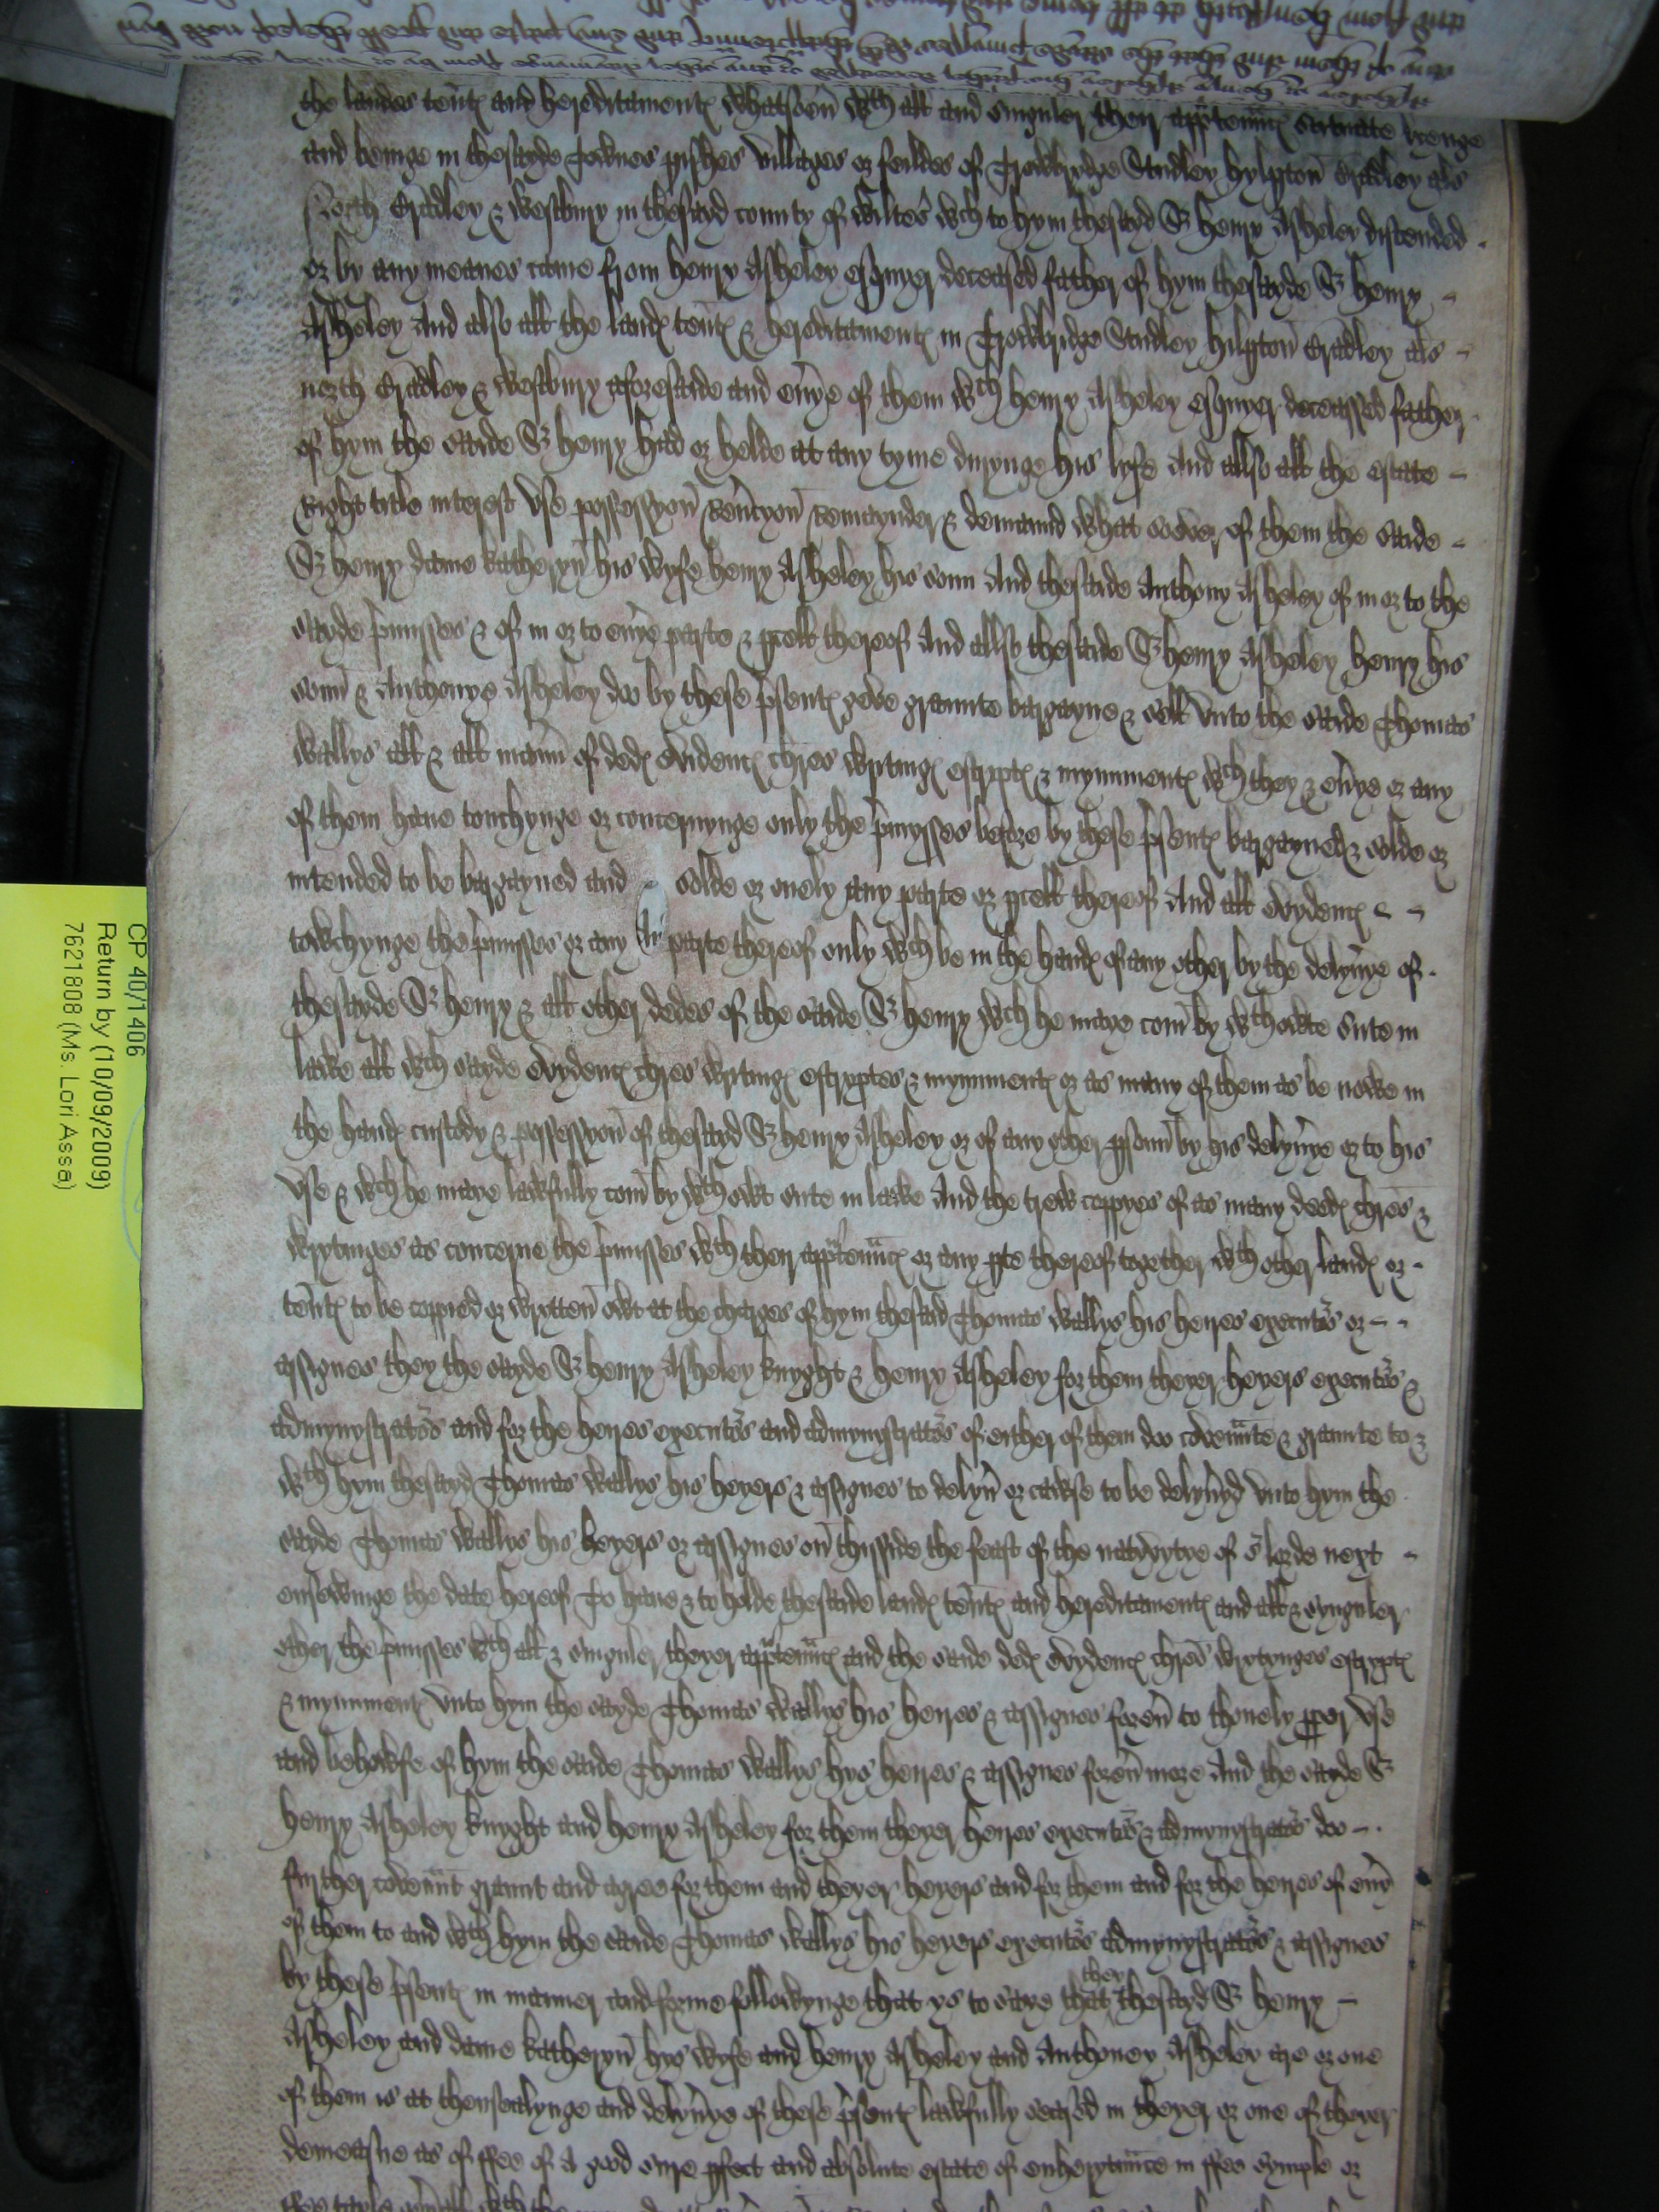 the landes tent and hereditament whatsoev wth all and singuler their apptenncs scituate lyenge
and beinge in thesayde townes pishes villages or feildes of Trowbrydge Studley hylpton Bradley als
North Bradley & westbury in thesayd county of wiltes wch to hym thesayd Sr henry Asheley discended
or by any meanes came from henry Asheley esquyer deceased father of hym thesayde Sr henry
Asheley And also all the land tent & hereditament in Trowbridge Studley hilpton Bradley als
north Bradley & westbury aforesaide and evye of them wch henry Asheley esquyer deceassed father
of hym the saide Sr henry had or helde at any tyme durynge his lyfe And allso all the estate
Right title interest vse possessyon Revcyon Remaynder & demaund what soever of them the saide
Sr henry dame katheryn his wyfe henry Asheley his sonn And thesaide Anthony Asheley of in or to the
sayde pmisses & of in or to evye parte & pcell thereof And allso thesaide Sr henry Asheley henry his
sonn & Anthonye Asheley doo by these psent geve graunte bargayne & sell vnto the saide Thomas
wallys all & all mann of ded evidenc chres wryting escrypt & mynument wch they & evye or any
of them haue touchynge or concernynge only the pmysses before by these psent bargayned & solde or
intended to be bargayned and solde or onely any parte or pcell thereof And all evydenc
towchynge the pmisses or any parte thereof only wch be in the hand of any other by the delyvye of
thesayde Sr henry & all other dedes of the saide Sr henry wch he maye com by wthowte sute in
lawe all wch sayde evydenc chres wryting escryptes & mynument or as many of them as be nowe in
the hand custody & possessyon of thesayd Sr henry Asheley or of any other psonn by his delyvye or to his
vse & wch he maye lawfully com by wthowt sute in lawe And the trew coppyes of as many deed chres &
wrytinges as concerne the pmisses wth their apptennc or any pte thereof together wth other land or
tent to be coppied or wrytten owt at the charges of hym thesaid Thomas wallys his heires executors or
assignes they the sayde Sr henry Asheley knyght & henry Asheley for them theyer heyers executors &
admynystrators and for the heires executors and admynystrators of either of them doo covennte & graunte to &
wth hym thesayd Thomas wallys his heyers & assignes to delyv or cawse to be delyvyd vnto hym the
sayde Thomas wallys his heyers or assignes on thisside the feast of the natyvytye of or lorde next
ensewinge the date hereof To haue & to holde thesaide land tent and hereditament and all & synguler
other the pmisses wth all & singuler theyer apptennc and the saide ded evydenc chres wrytynges escrypt
& mynument vnto hym the sayde Thomas wallys his heires & assignes forev to thonely pper vse
and behowfe of hym the saide Thomas wallys hys heires & assignes forev more And the sayde Sr
henry Asheley knyght and henry Asheley for them theyer heires executors & admynystrators doo
further covennt graunt and agree for them and theyer heyers and for them and for the heires of evy
of them to and wth hym the saide Thomas wallys his heyers executors admynystrators & assignes
by these psent in manner and forme followynge that ys to saye that they thesayd Sr henry
Asheley and dame katheryn hys wyfe and henry Asheley and Anthoney Asheley are or one
of them is at thensealynge and delyvye of these psent lawfully seased in theyer or one of theyer
demeasne as of ffee of a good sure pfect and absolute estate of enherytance in ffee symple or
CP 40/1406
Return by (10/09/2009)
7621808 (Ms. Lori Assa)